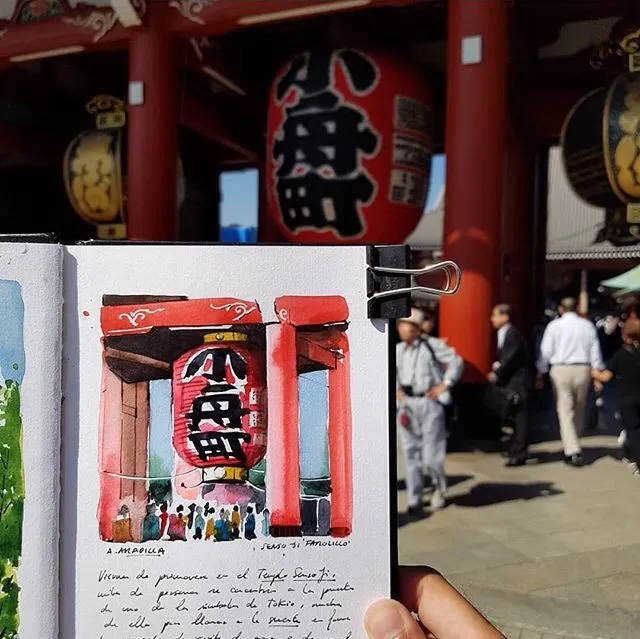 小舟町
小舟町
A. AMADILLA
SENSO JI FAROLILLO
Viernes de primavera en el Templo Senso Ji,
miles de personas se concentran a la puerta
de uno de los símbolos de Tokio, muchos
de ellos para llamar a la suerte en forma